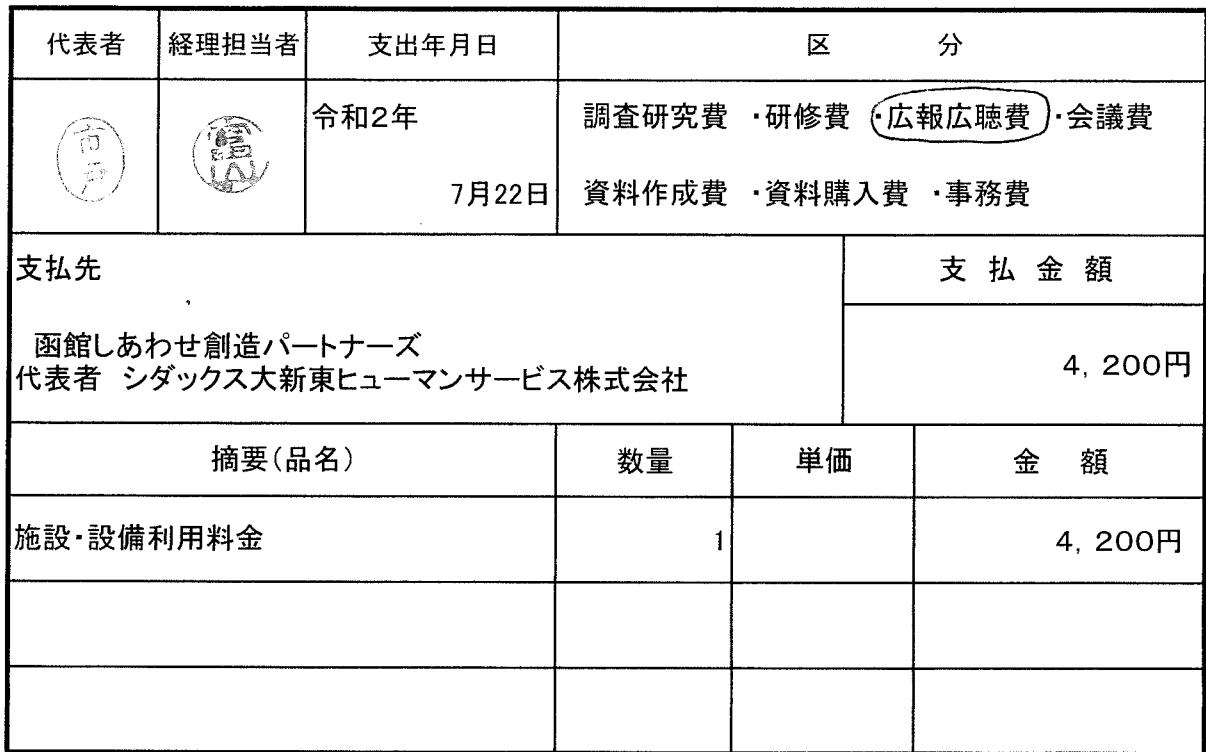 代表者 経理担当者 支出年月日 区 分
市戸
令和2年
7月22日
調査研究費 ・研修費 ・広報広聴費 ・会議費
資料作成費 ・資料購入費 ・事務費
支払先
支 払 金 額
函館しあわせ創造パートナーズ
代表者 シダックス大新東ヒューマンサービス株式会社
4,200円
摘要(品名) 数量 単価 金 額
施設・設備利用料金 1 4,200円